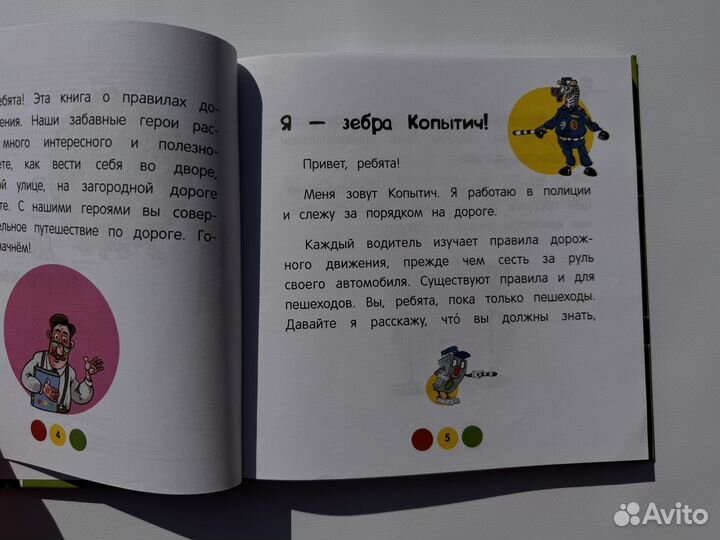 ебята! Эта книга о правилах до-
ения. Наши забавные герои рас-
много интересного и полезно-
ете, как вести себя во дворе,
ой улице, на загородной дороге
те. С нашими героями вы совер-
ельное путешествие по дороге. Го-
начнём!
4
Я — зебра Копытич!
Привет, ребята!
Меня зовут Копытич. Я работаю в полиции
и слежу за порядком на дороге.
Каждый водитель изучает правила дорож-
ного движения, прежде чем сесть за руль
своего автомобиля. Существуют правила и для
пешеходов. Вы, ребята, пока только пешеходы.
Давайте я расскажу, что́ вы должны знать,
5
Avito